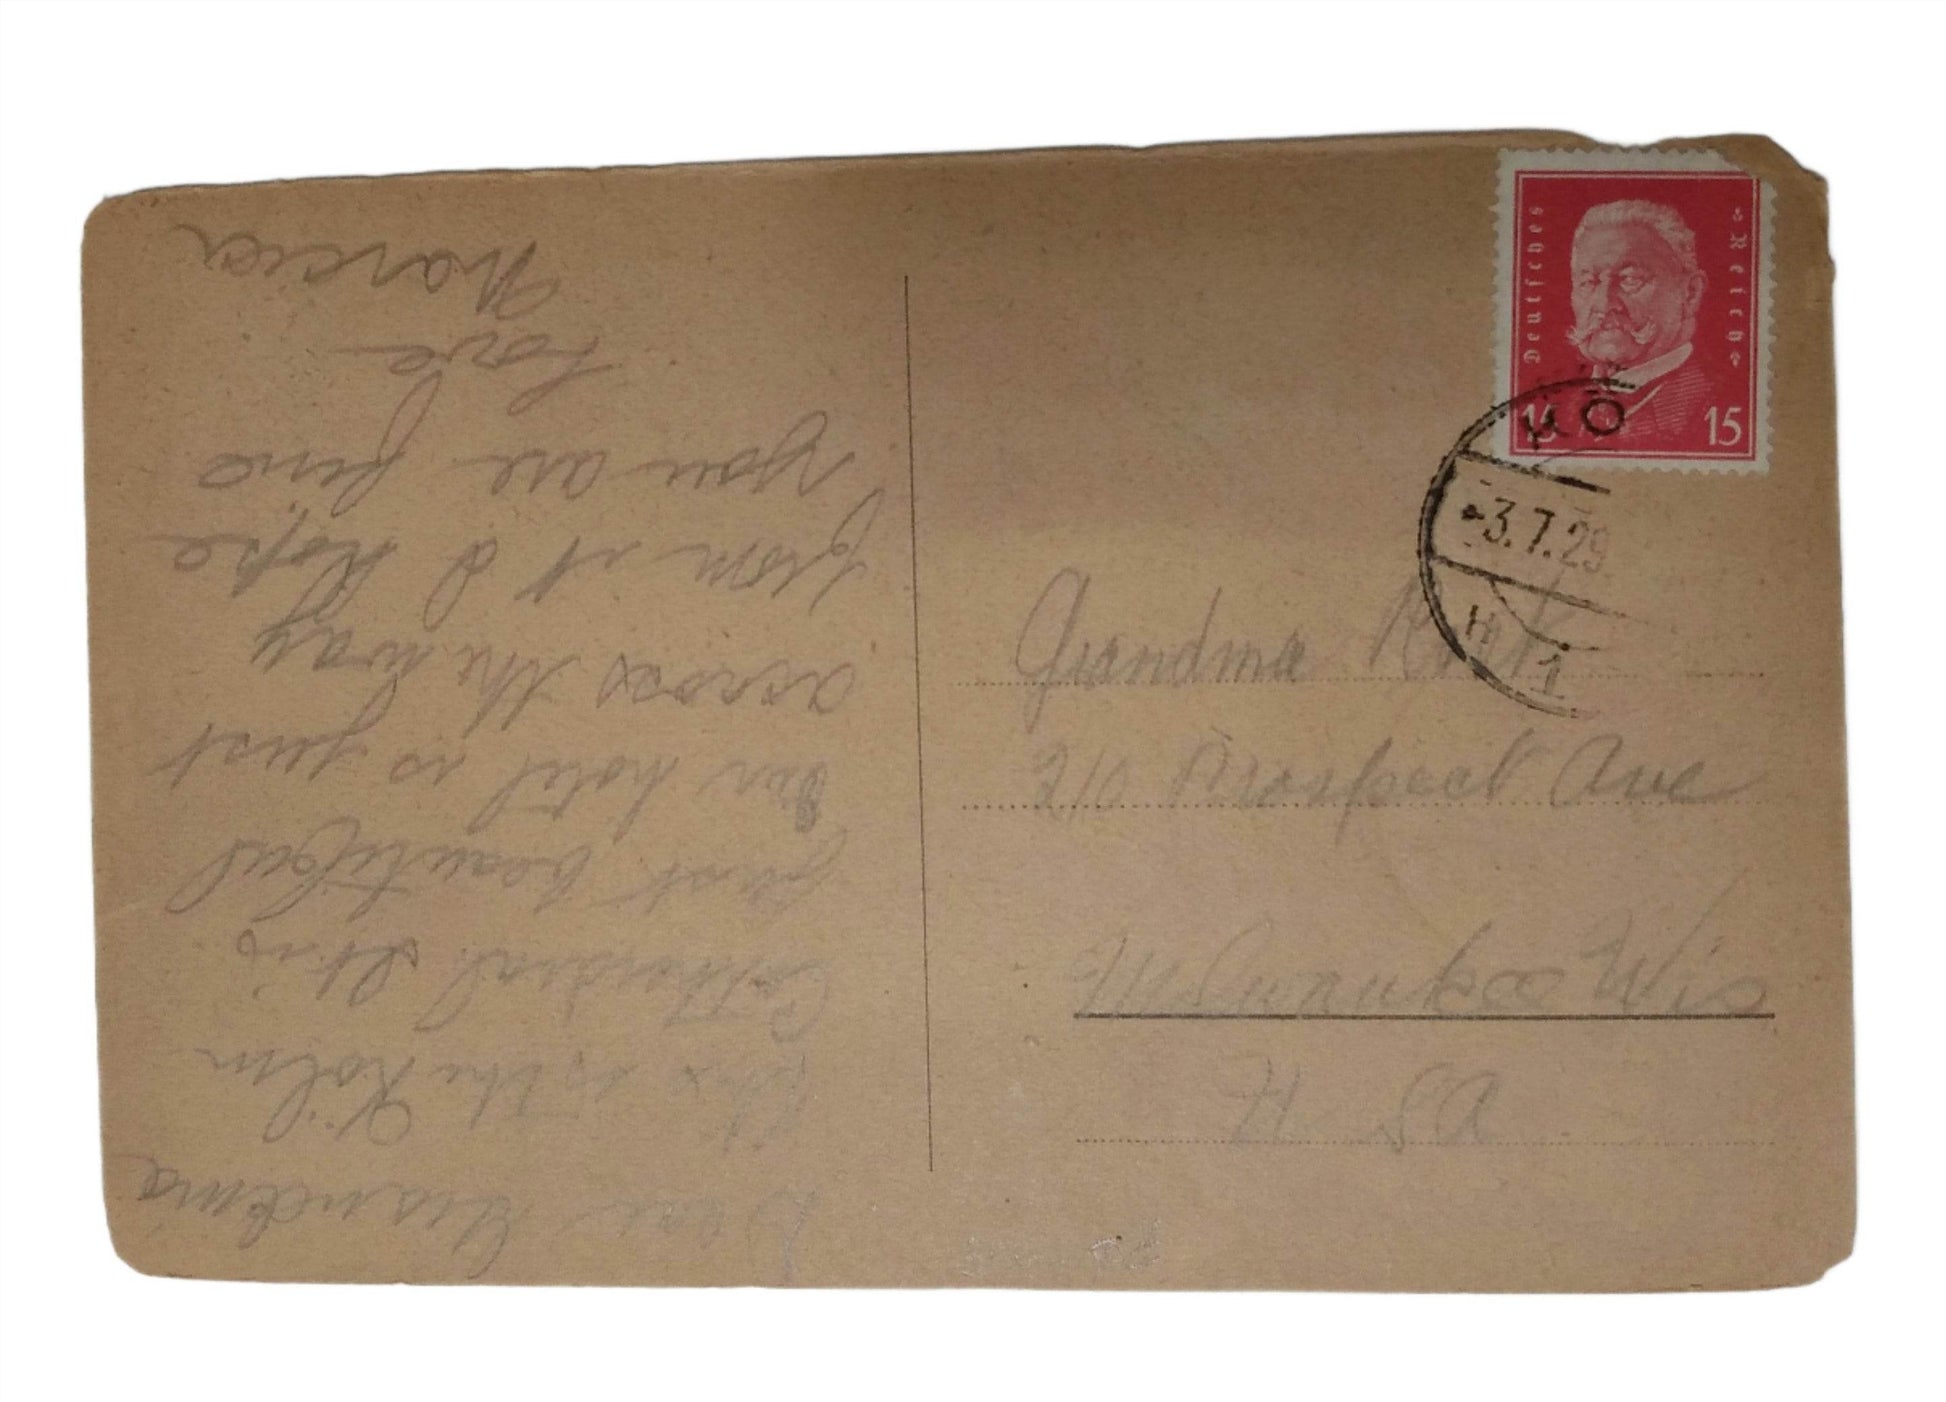 Dear Grandma
This is the Köln
Cathedral. It is
just beautiful
Our hotel is just
across the way
from it I hope
you are fine
Love
Marcia
Deutsches Reich
15 15
KÖ
-3.7.29
1
Grandma
210 Prospect Ave
U S A